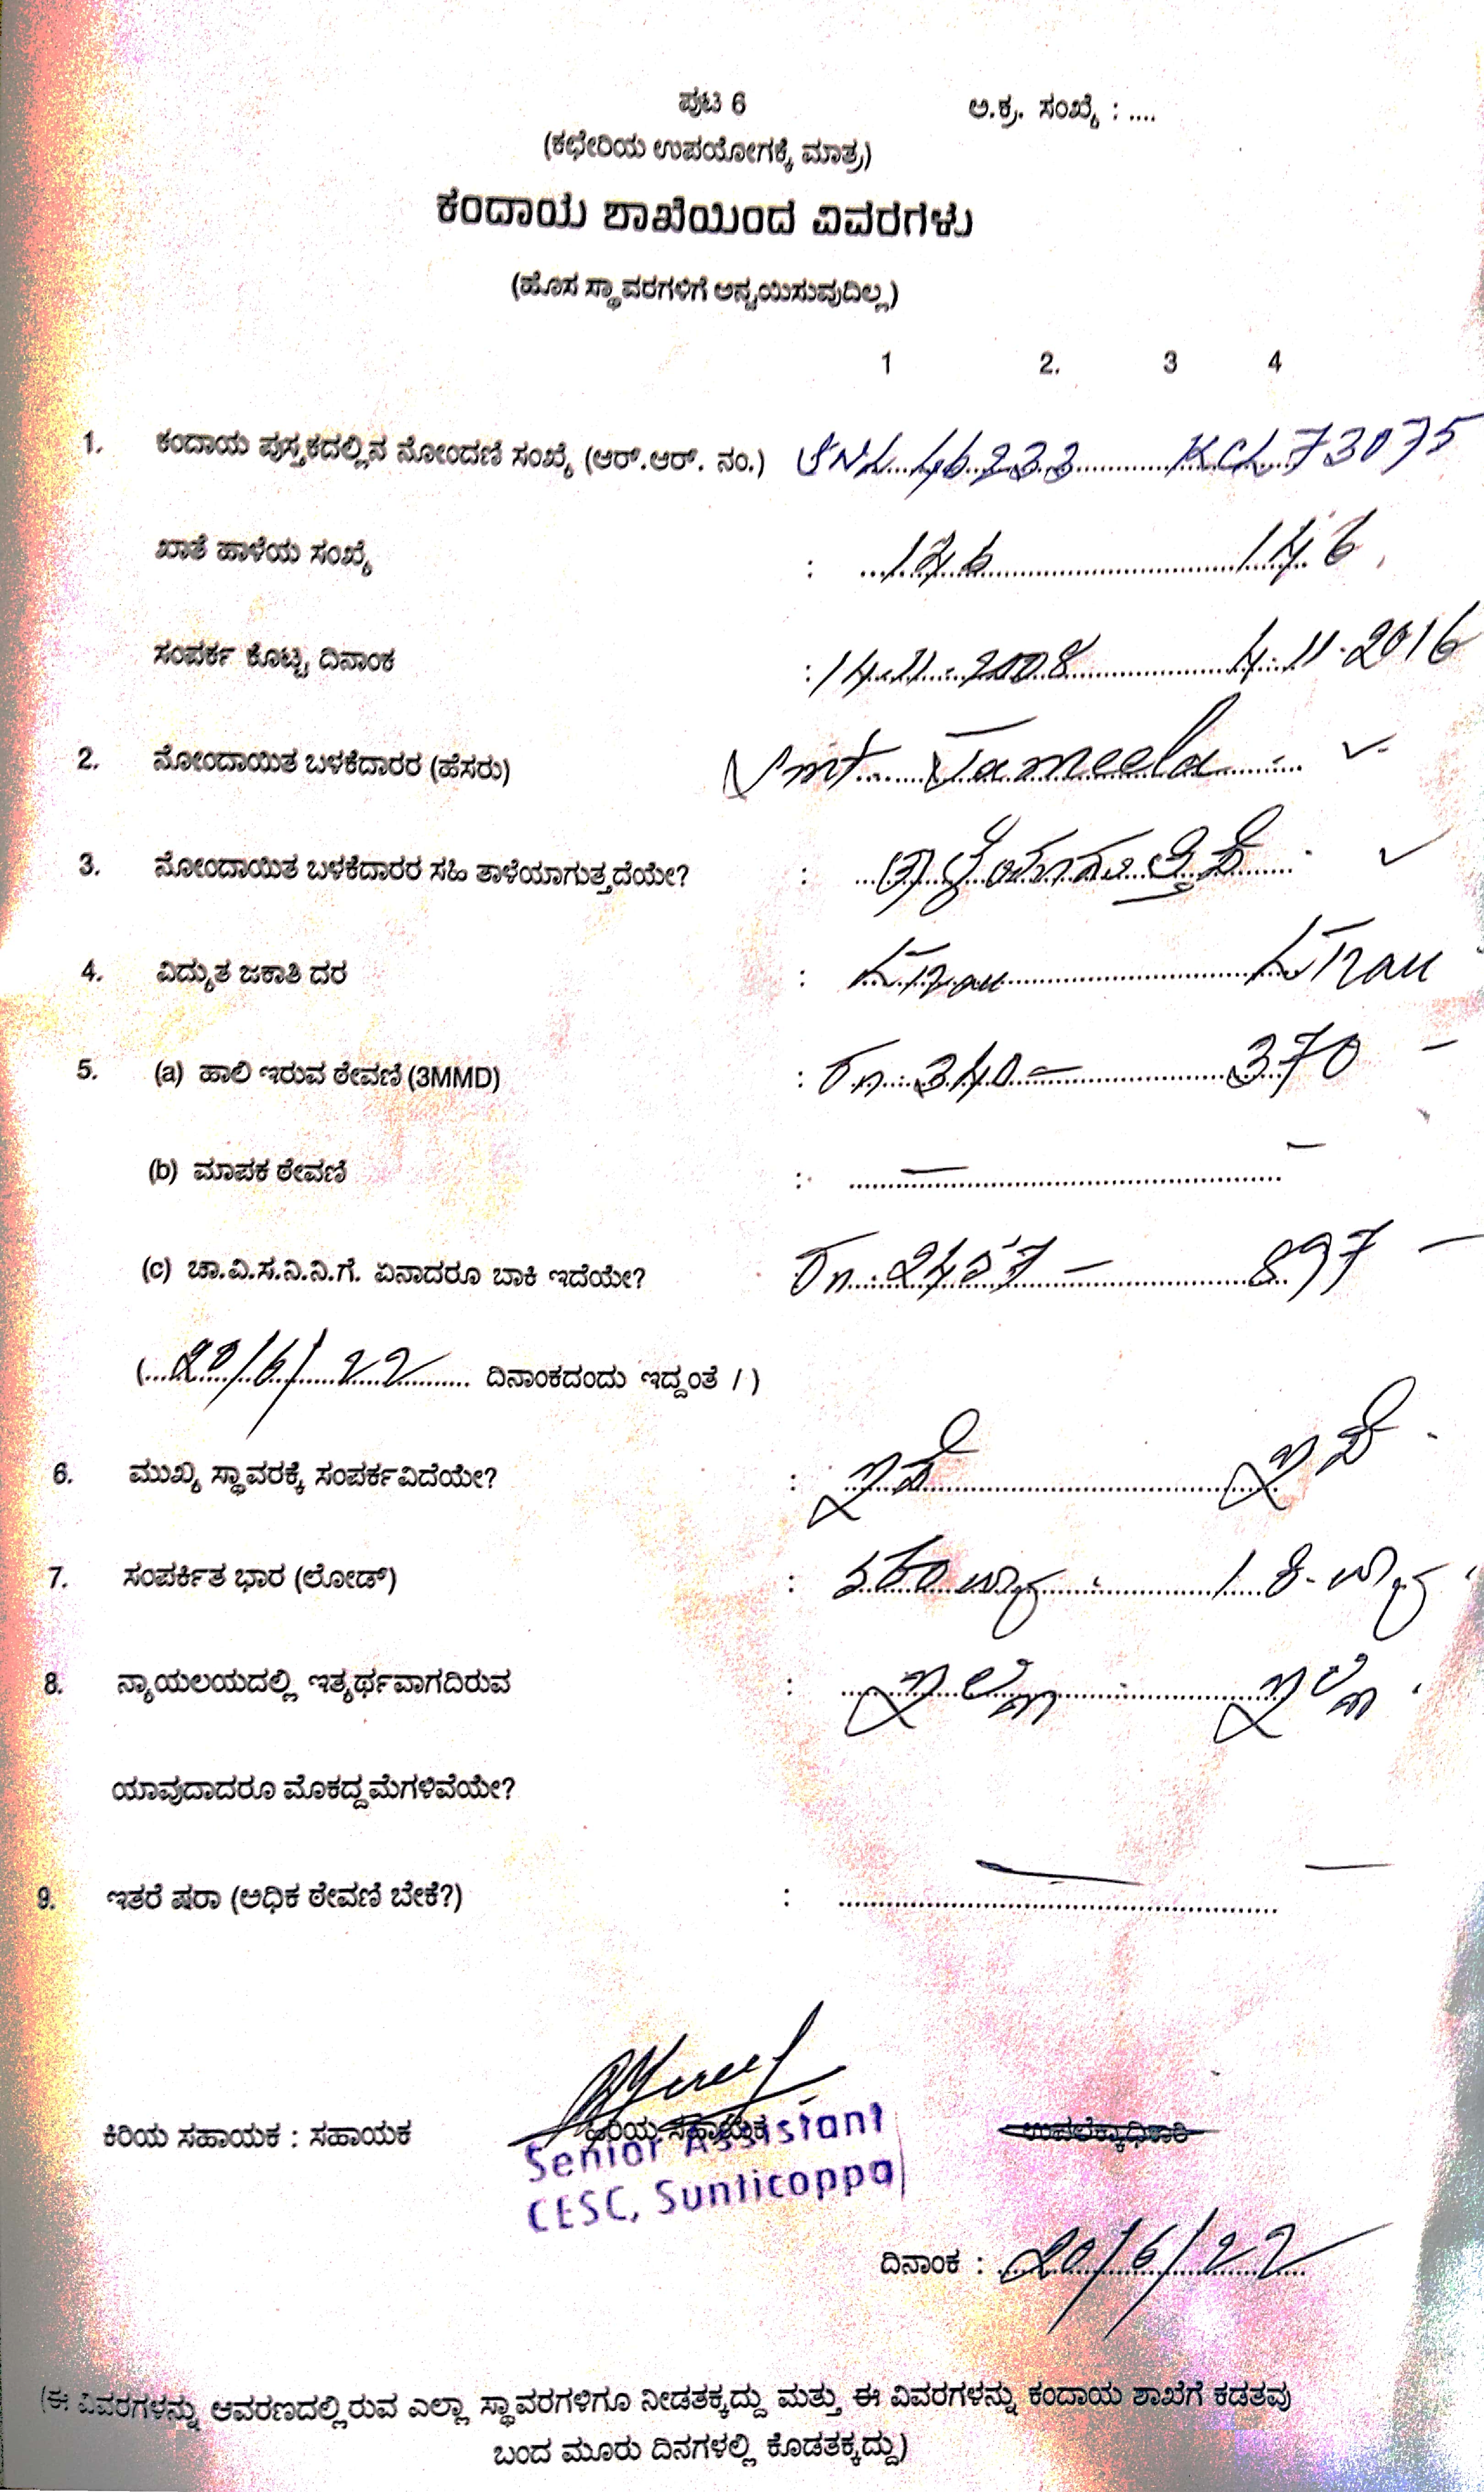 ಪುಟ 6 ಅ.ಕ್ರ. ಸಂಖ್ಯೆ : ....
(ಕಛೇರಿಯ ಉಪಯೋಗಕ್ಕೆ ಮಾತ್ರ)
ಕಂದಾಯ ಶಾಖೆಯಿಂದ ವಿವರಗಳು
(ಹೊಸ ಸ್ಥಾವರಗಳಿಗೆ ಅನ್ವಯಿಸುವುದಿಲ್ಲ)
1 2. 3 4
1. ಕಂದಾಯ ಪುಸ್ತಕದಲ್ಲಿನ ನೋಂದಣಿ ಸಂಖ್ಯೆ (ಆರ್.ಆರ್. ನಂ.) 46233 KCL 73075
ಖಾತೆ ಹಾಳೆಯ ಸಂಖ್ಯೆ : 146
ಸಂಪರ್ಕ ಕೊಟ್ಟ ದಿನಾಂಕ : 14.11.2008 4.11.2016
2. ನೋಂದಾಯಿತ ಬಳಕೆದಾರರ (ಹೆಸರು) Smt Jameela
3. ನೋಂದಾಯಿತ ಬಳಕೆದಾರರ ಸಹಿ ತಾಳೆಯಾಗುತ್ತದೆಯೇ? :
4. ವಿದ್ಯುತ ಜಕಾತಿ ದರ :
5. (a) ಹಾಲಿ ಇರುವ ಠೇವಣಿ (3MMD) : 340 — 370 —
(b) ಮಾಪಕ ಠೇವಣಿ : — —
(c) ಚಾ.ವಿ.ಸ.ನಿ.ನಿ.ಗೆ. ಏನಾದರೂ ಬಾಕಿ ಇದೆಯೇ? 2457 — 897 —
( 20/6/22 ದಿನಾಂಕದಂದು ಇದ್ದಂತೆ / )
6. ಮುಖ್ಯ ಸ್ಥಾವರಕ್ಕೆ ಸಂಪರ್ಕವಿದೆಯೇ? : ಇದೆ ಇದೆ
7. ಸಂಪರ್ಕಿತ ಭಾರ (ಲೋಡ್) : 1 ಕಿ.ವ್ಯಾ
8. ನ್ಯಾಯಲಯದಲ್ಲಿ ಇತ್ಯರ್ಥವಾಗದಿರುವ : ಇಲ್ಲ ಇಲ್ಲ
ಯಾವುದಾದರೂ ಮೊಕದ್ದಮೆಗಳಿವೆಯೇ?
9. ಇತರೆ ಷರಾ (ಅಧಿಕ ಠೇವಣಿ ಬೇಕೆ?) : — —
ಕಿರಿಯ ಸಹಾಯಕ : ಸಹಾಯಕ ಹಿರಿಯ ಸಹಾಯಕ ಉಪಲೆಕ್ಕಾಧಿಕಾರಿ
Senior Assistant
CESC, Sunticoppa
ದಿನಾಂಕ : 20/6/22
(ಈ ವಿವರಗಳನ್ನು ಆವರಣದಲ್ಲಿರುವ ಎಲ್ಲಾ ಸ್ಥಾವರಗಳಿಗೂ ನೀಡತಕ್ಕದ್ದು ಮತ್ತು ಈ ವಿವರಗಳನ್ನು ಕಂದಾಯ ಶಾಖೆಗೆ ಕಡತವು
ಬಂದ ಮೂರು ದಿನಗಳಲ್ಲಿ ಕೊಡತಕ್ಕದ್ದು)